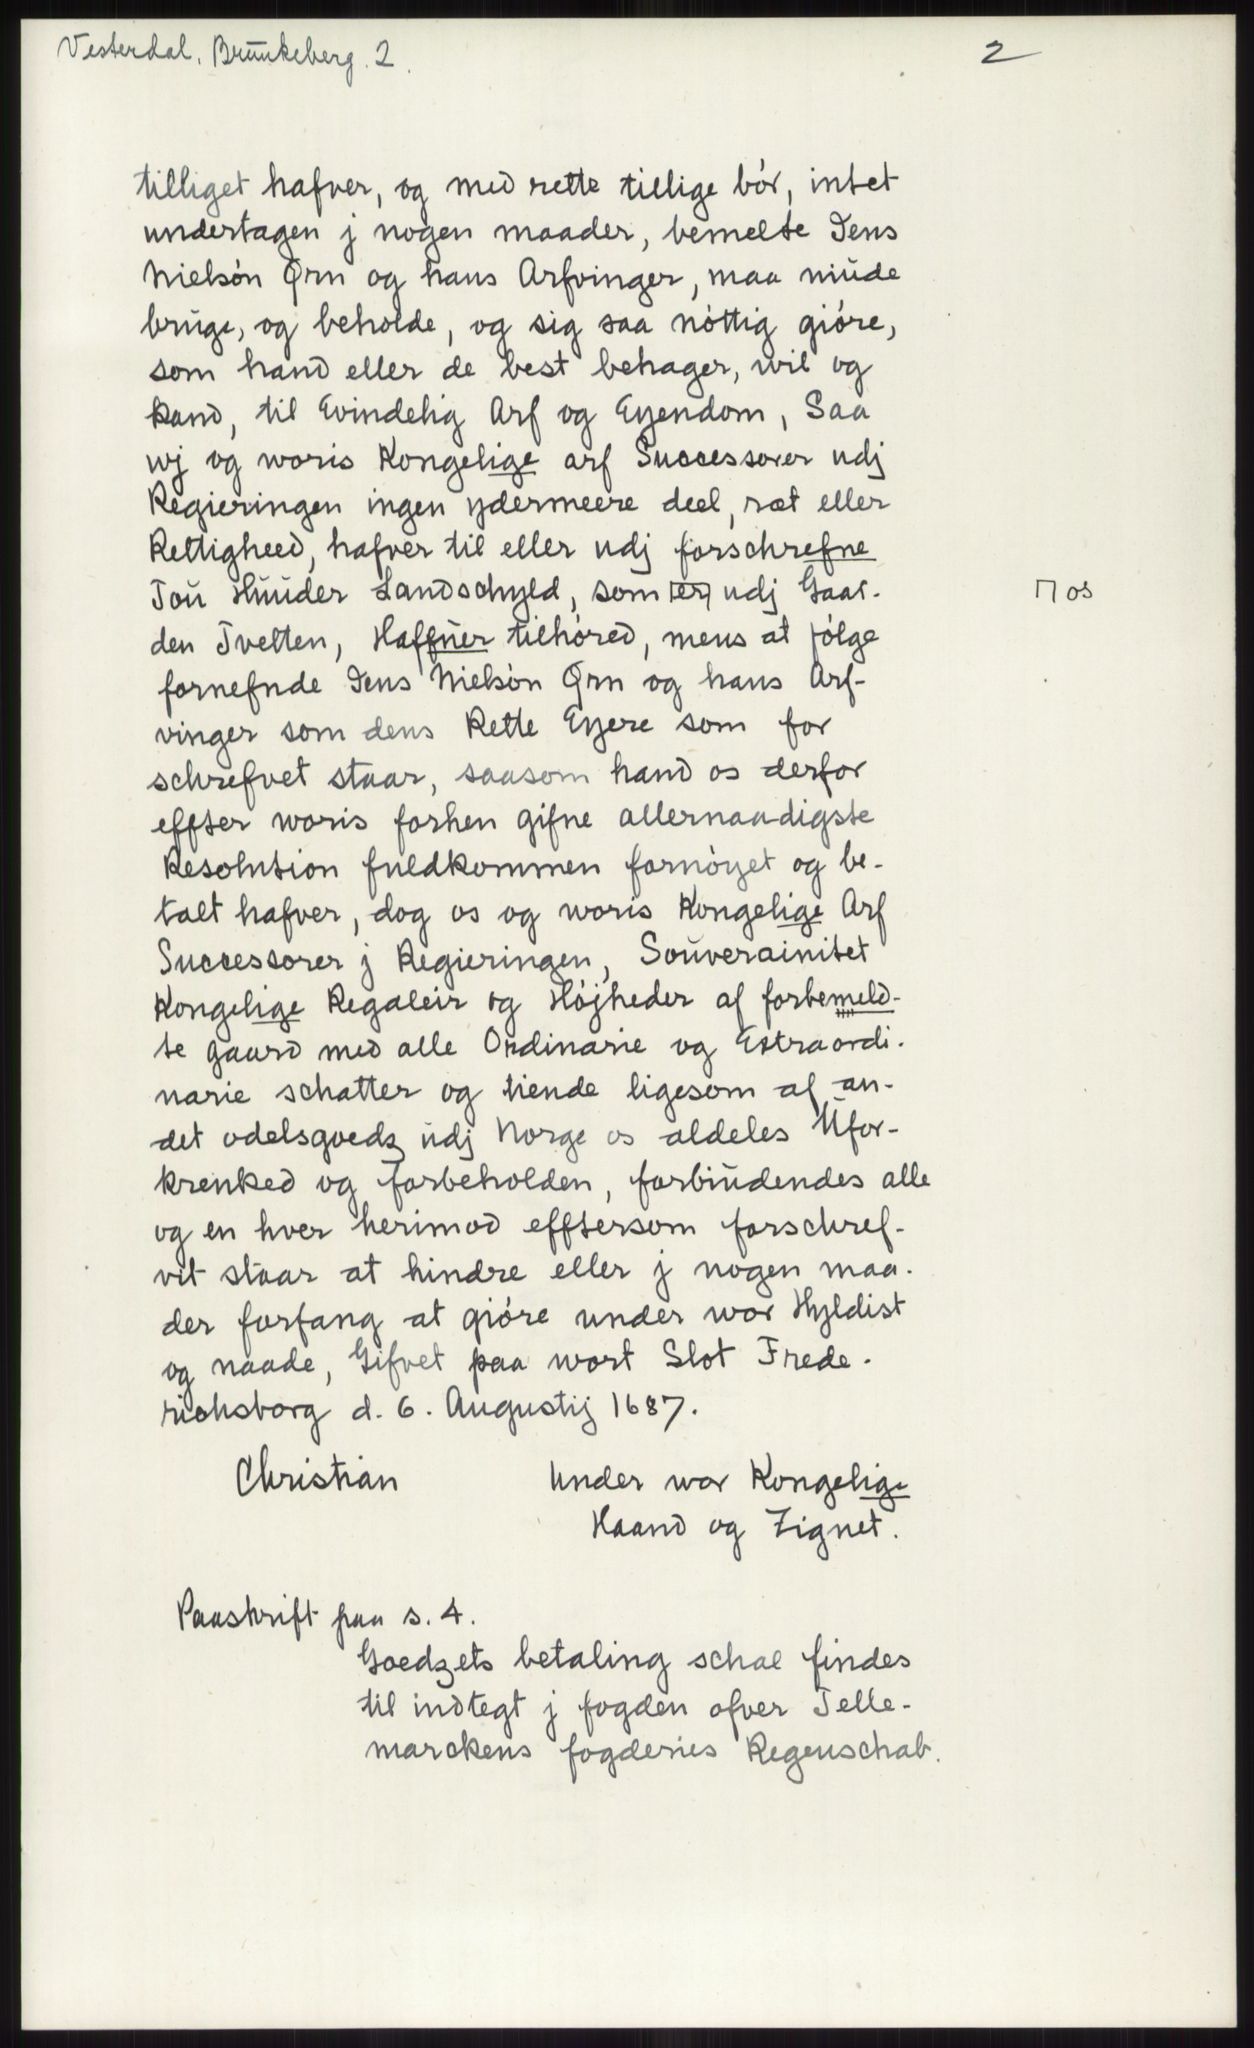 Vesterdal, Brŭnkeberg. 2.
2
tilliget hafver, og med rette tillige bór, intet
undertagen j nogen maader, bemelte Jens
Nielsón Ørn og hans Arfvinger, maa niŭde
brŭge, og beholde, og sig saa nóttig gióre,
som hand eller de best behager, wil og
kand, til Evindelig Arf og Eyendom, Saa
wj og woris Kongelige arf Successorer udj
Regieringen ingen ydermeere deel, ræt eller
Rettigheed, hafver til eller udj forschrefne
Toŭ Hŭŭder Landschyld, som [er] udj Gaar-
den Tvetten, Haffŭer tilhóred, mens at fólge
fornefnde Jens Nielsón Ørn og hans Arf-
vinger som dens Rette Eyere som for
schrefvet staar, saasom hand os derfor
effter woris forhen gifne allernaadigste
Resolution fuldkommen fornóyet og be-
talt hafver, dog os og woris Kongelige Arf
Successorer j Regieringen, Soŭverainitet
Kongelige Regaleir og Hójheder af forbemeld-
te gaard med alle Ordinarie og Extraordi-
narie schatter og tiende ligesom af an-
det odelsgoedz ŭdj Norge os aldeles Ŭfor-
krenked og forbeholden, forbiŭdendes alle
og en hver herimod efftersom forschref-
vit staar at hindre eller j nogen maa-
der forfang at gióre under wor Hyldist
og naade, Gifvet paa wort Slot Frede-
richsborg d. 6. Augustij 1687.
⊓ os
Christian Under wor Kongelige
Haand og Zignet.
Paaskrift paa s. 4.
Goedzets betaling schal findes
til indtegt j fogden ofver Telle-
marckens fogderies Regenschab.